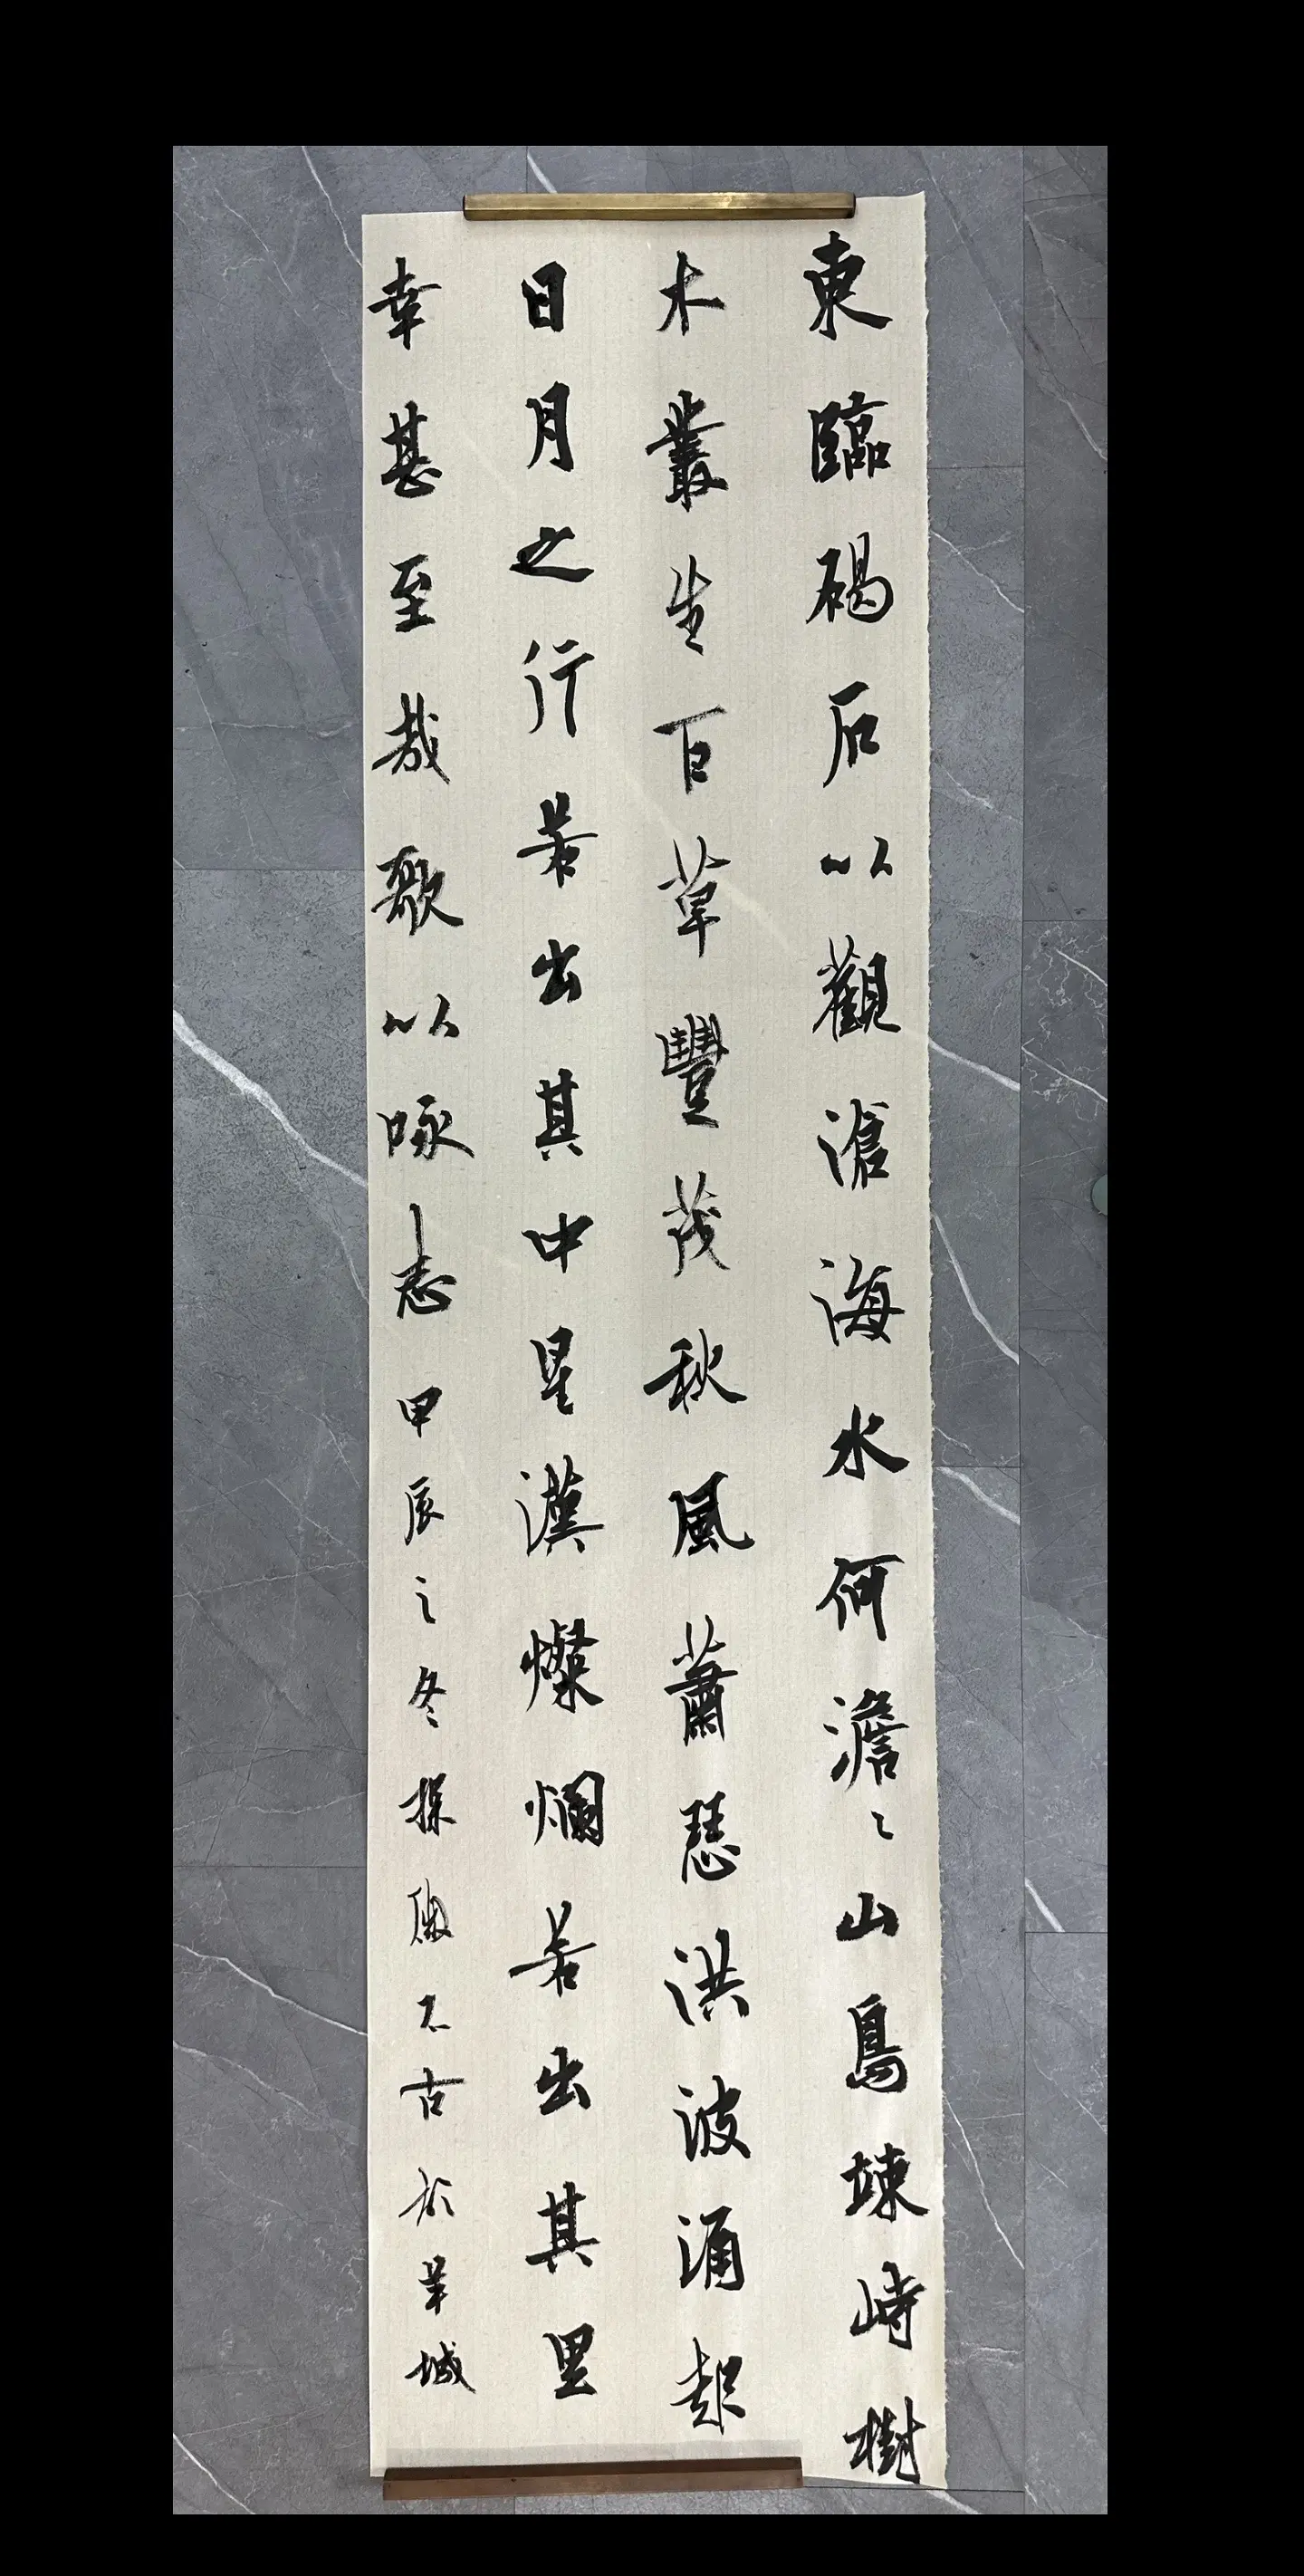 東臨碣石以觀滄海水何澹〻山島竦峙樹
木叢生百草豐茂秋風蕭瑟洪波涌起
日月之行若出其中星漢燦爛若出其里
幸甚至哉歌以咏志甲辰之冬探幽不古於羊城